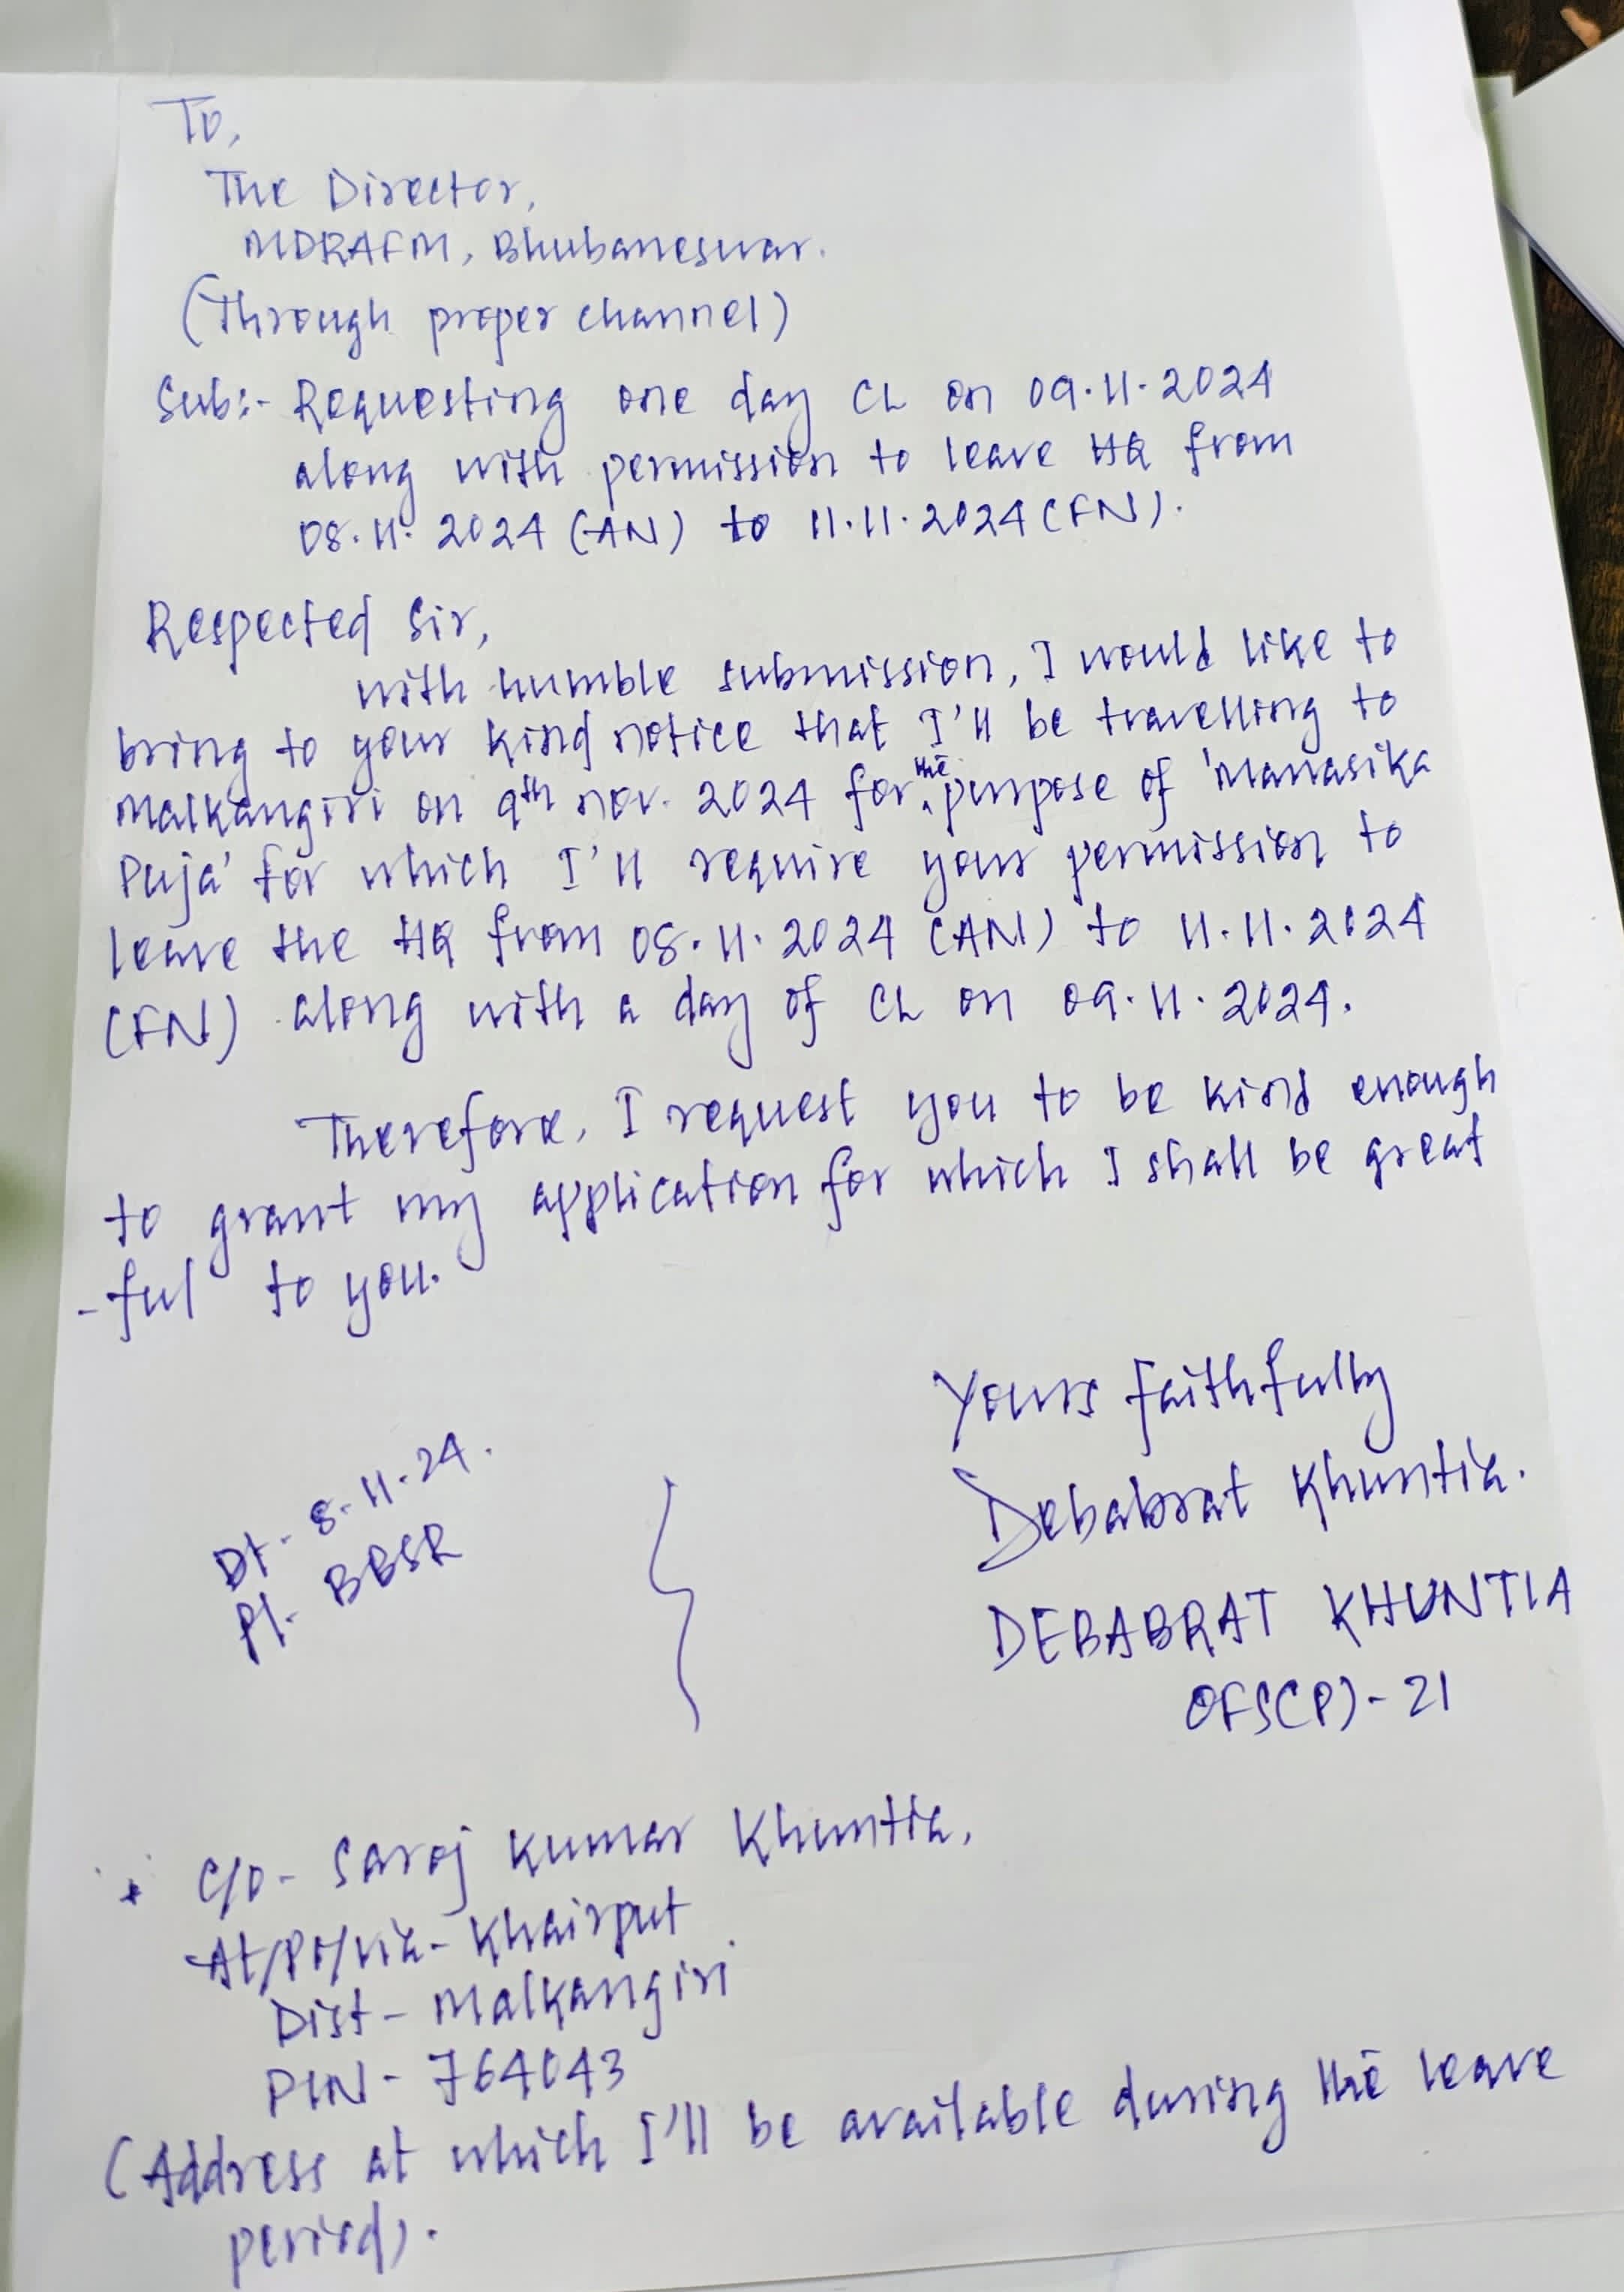 To,
The Director,
MDRAFM, Bhubaneswar.
(Through proper channel)
Sub:- Requesting one day CL on 09.11.2024
along with permission to leave HQ from
08.11.2024 (AN) to 11.11.2024 (FN).
Respected Sir,
with humble submission, I would like to
bring to your kind notice that I'll be travelling to
Malkangiri on 9th nov. 2024 for the purpose of 'Manasika
Puja' for which I'll require your permission to
leave the HQ from 08.11.2024 (AN) to 11.11.2024
(FN) along with a day of CL on 09.11.2024.
Therefore, I request you to be kind enough
to grant my application for which I shall be great
-ful to you.
Yours faithfully
Debabrat Khuntia.
DEBABRAT KHUNTIA
OFS(P)-21
Dt- 8-11-24.
Pl- BBSR
* C/O- Saroj Kumar Khuntia,
At/Po/via- Khairput
Dist- Malkangiri
PIN- 764043
(Address at which I'll be available during the leave
period).